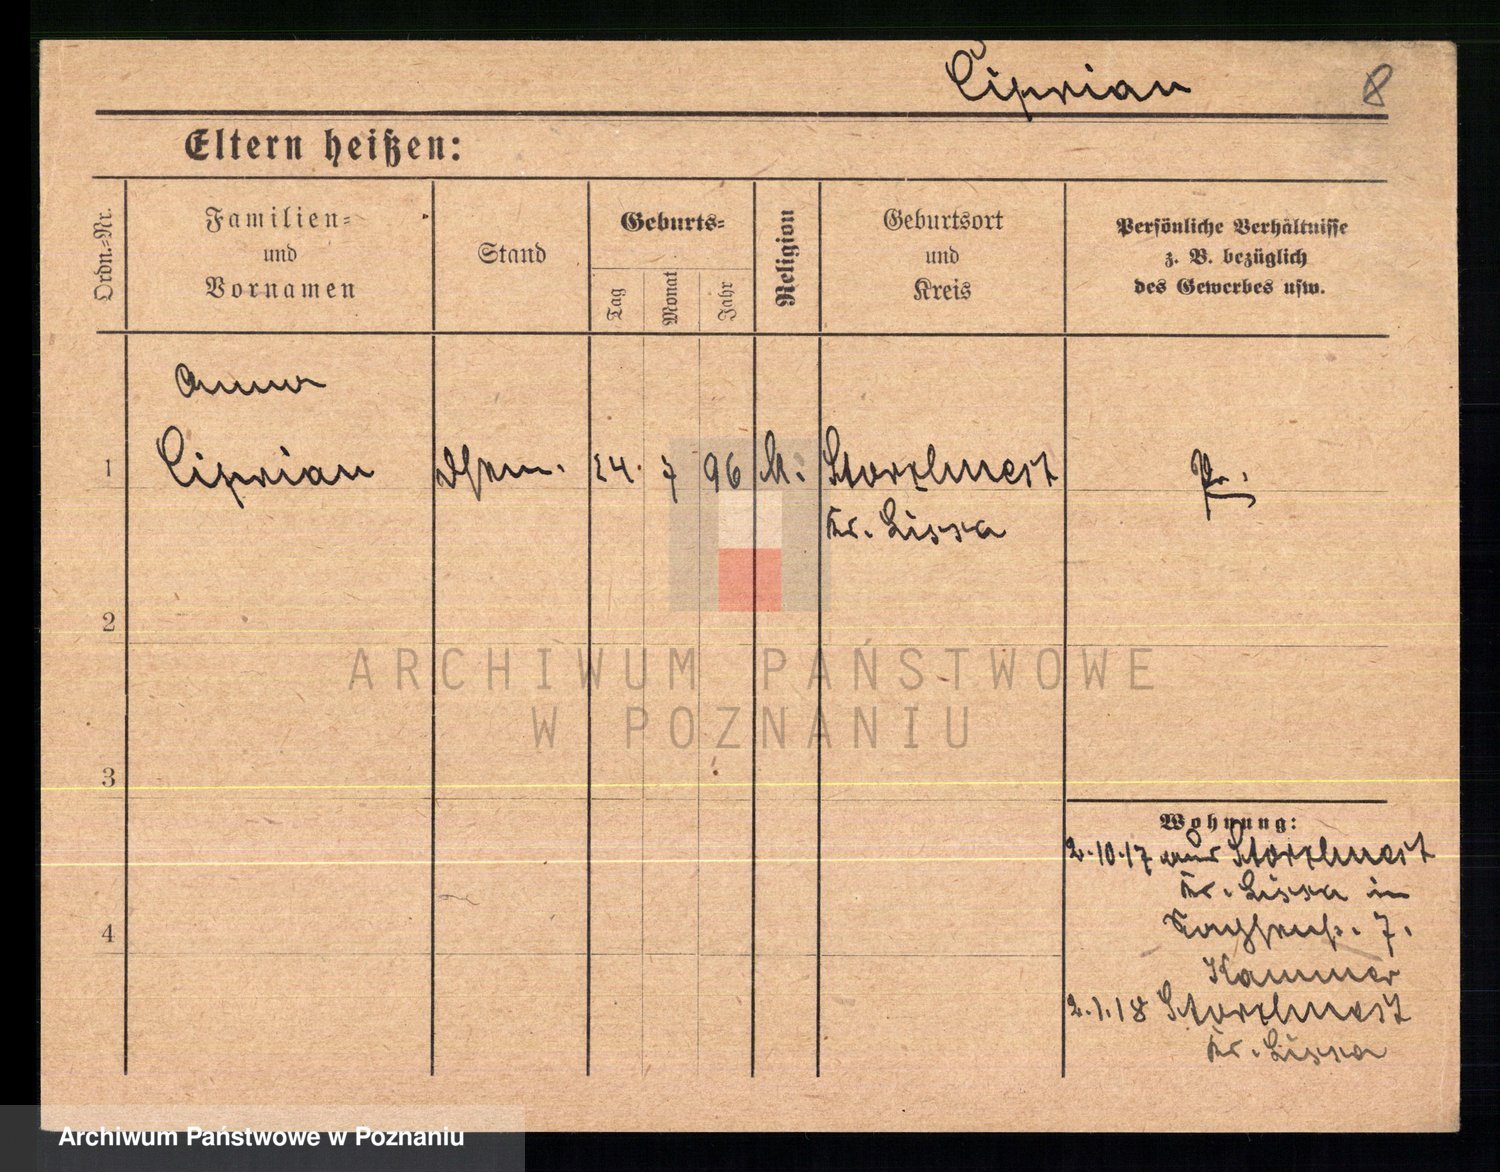 Ciprian
8
Eltern heißen:
Ordn.-Nr.
Familien-
und
Vornamen
Stand
Geburts-
Tag
Monat
Jahr
Religion
Geburtsort
und
Kreis
Persönliche Verhältnisse
z. B. bezüglich
des Gewerbes usw.
Anna
1 Ciprian 24. 7 96 Storchnest
Kr. Lissa
Pr.
2
3
4
ARCHIWUM PAŃSTWOWE
W POZNANIU
Wohnung:
2.10.17 aus Storchnest
Kr. Lissa in
7.
Kammer
2.1.18 Storchnest
Kr. Lissa
Archiwum Państwowe w Poznaniu